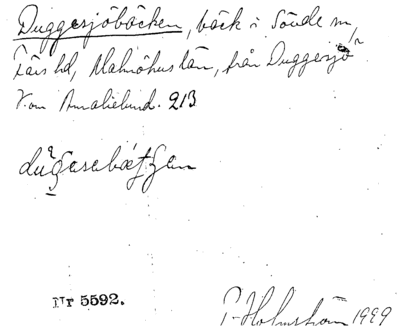 Duggesjöbäcken, bäck i Sövde sn,
Färs hd, Malmöhus län, från Duggesjön
V om Amalielund. 213
Nr 5592.
P. Holmström 1999